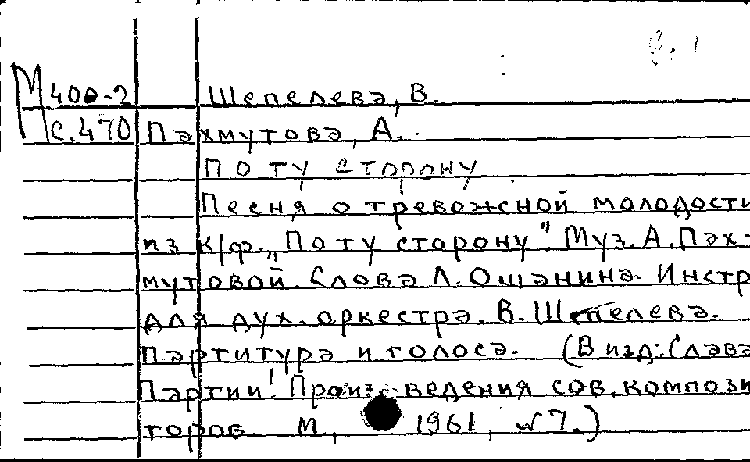 М 400-2 Шепелева, В.
с. 470 Пахмутова, А.
По ту сторону
Песня о тревожной молодости
из к/ф. „По ту сторону" Муз. А. Пах-
мутовой. Слова Л. Ошанина. Инстр
для дух. оркестра. В. Шепелева.
Партитура и голоса. (В изд: Слава
Партии! Произведения сов. компози
торов М, 1961, №7.)